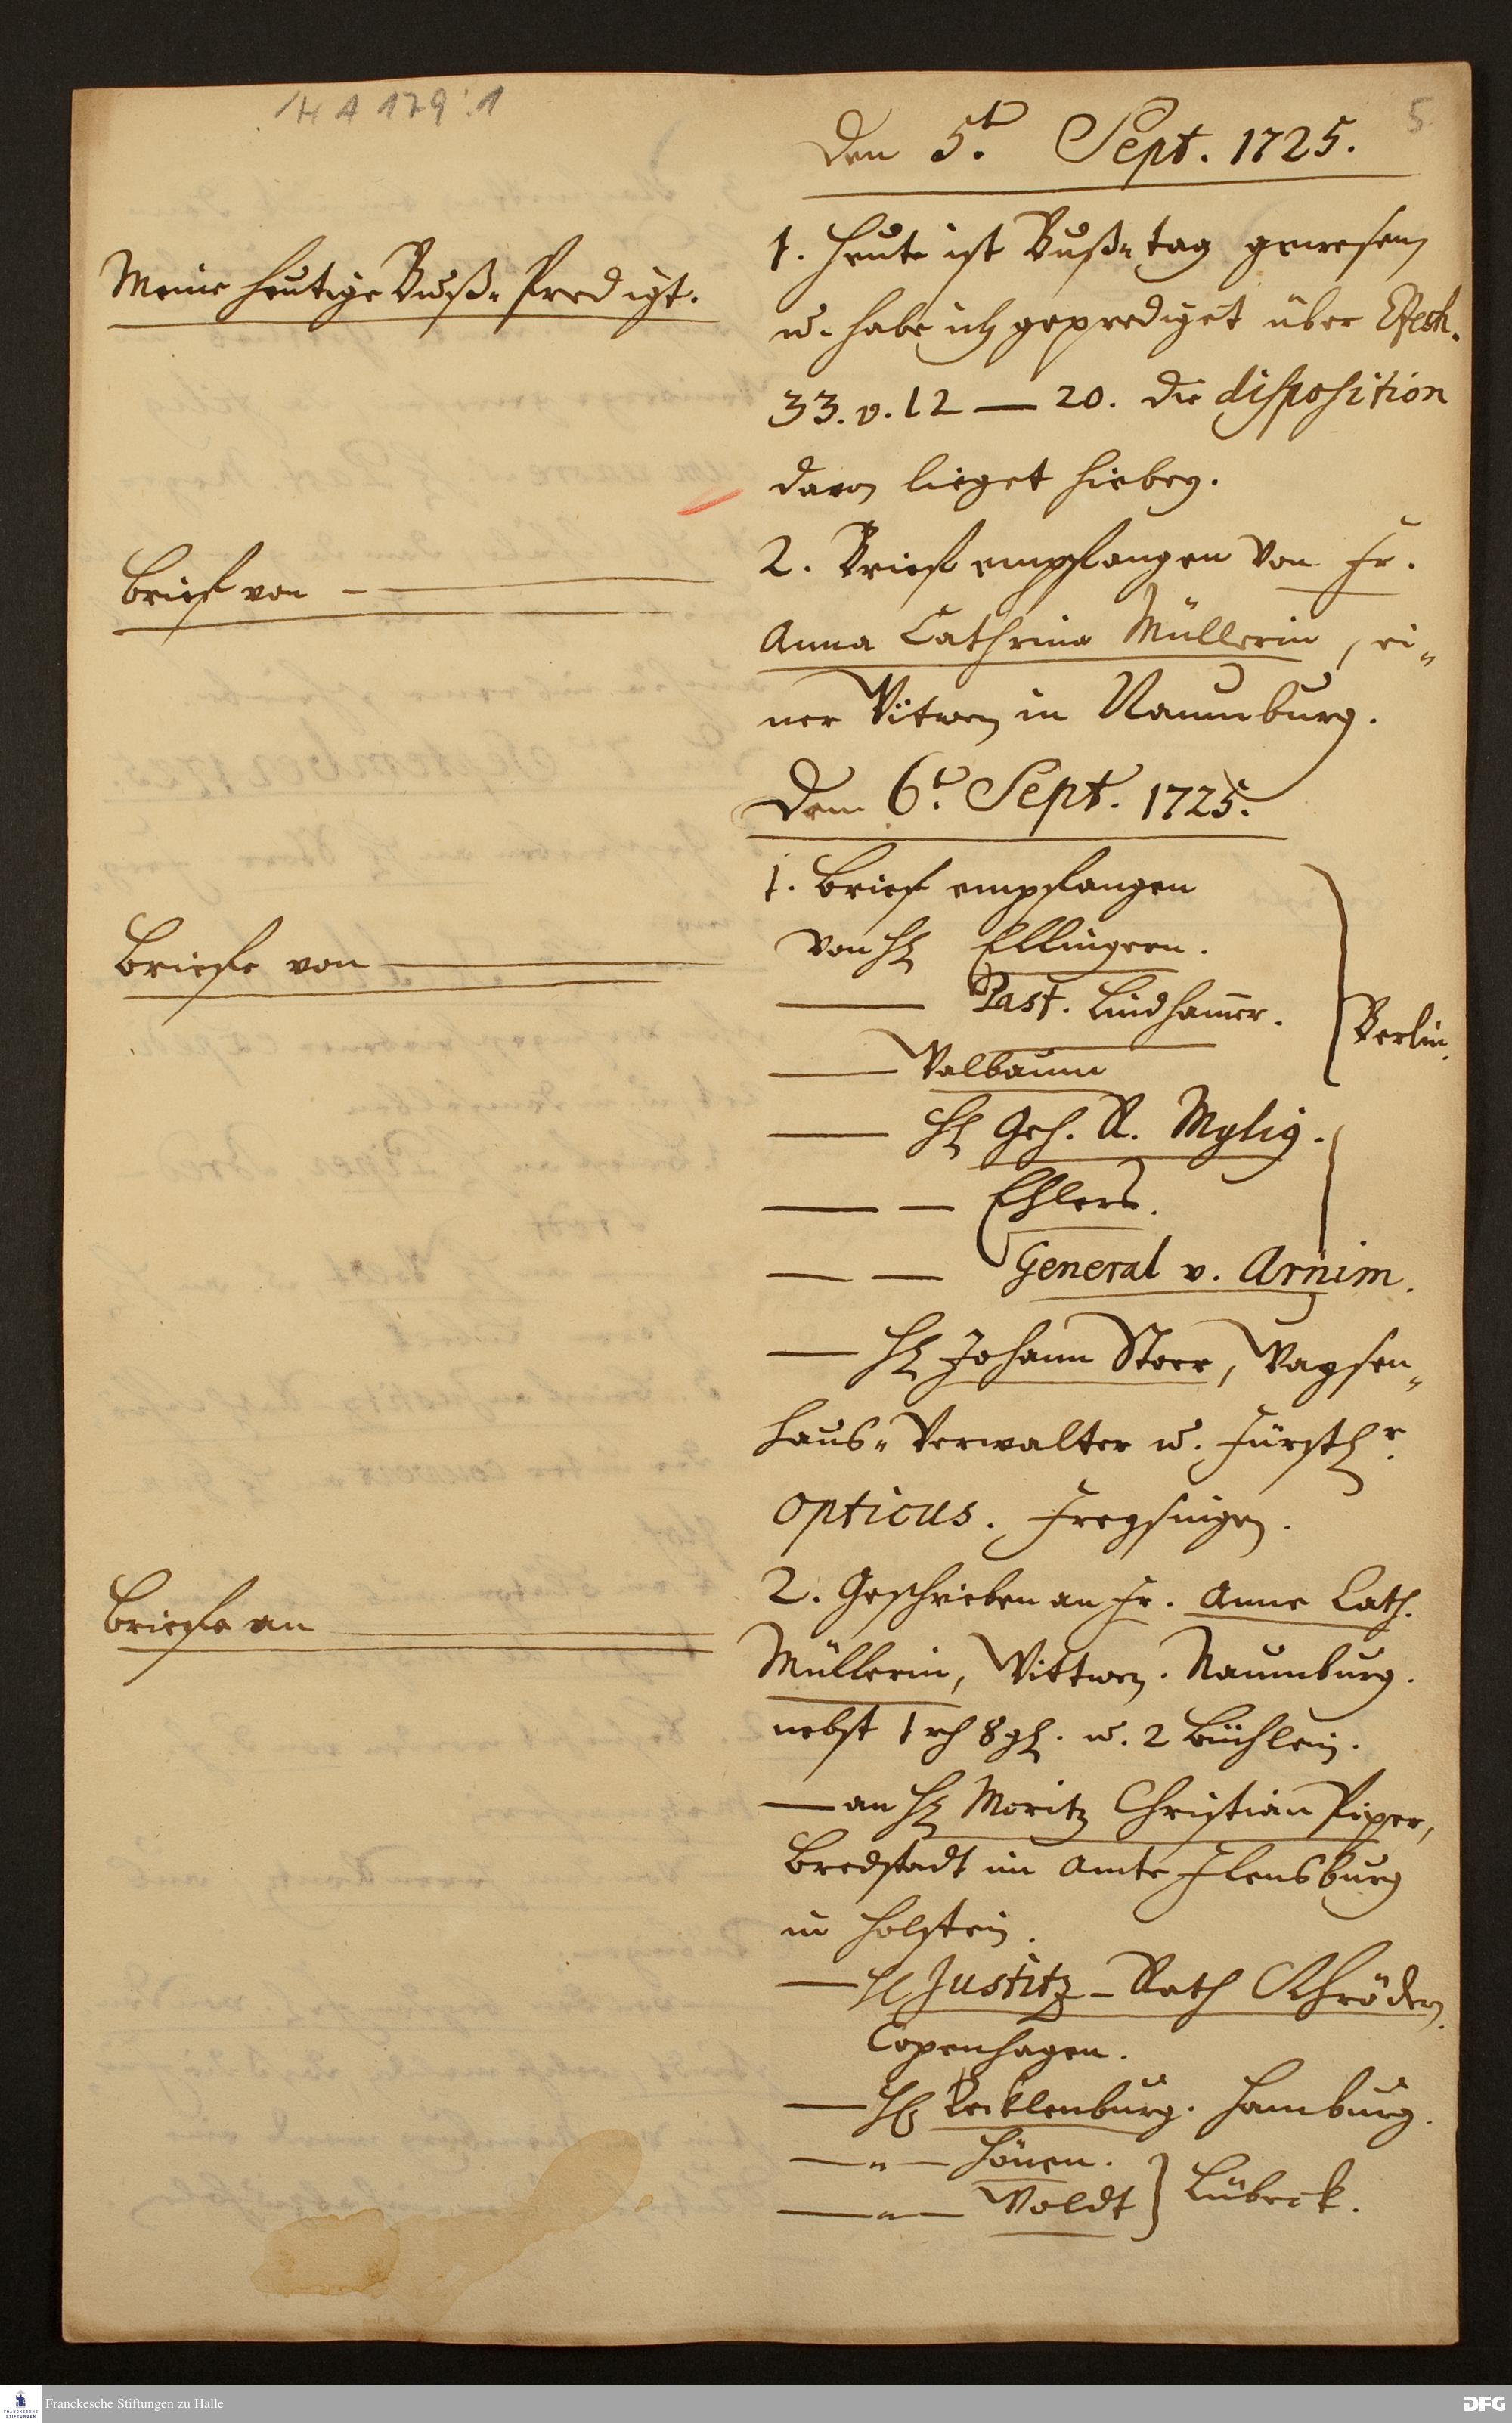 H A 179:1
5
Den 5.t Sept. 1725.
Meine heutige Buß-Predigt.
1. Heute ist Buß-tag gewesen
u. habe ich geprediget über Ezech.
33. v. 12 — 20. die disposition
davon lieget hiebey.
Brief von —
2. Brief empfangen von Fr.
Anna Cathrina Müllerin, ei-
ner Witwen in Naumburg.
Dem 6.t Sept. 1725.
Briefe von —
1. Brief empfangen
von H Ellingern.
— Past. Lindhamer.
Berlin.
— Walbaum
— H Geh. R. Mylig.
— — Ehlers.
— — General v. Arnim.
— H Johann Storr, Waysen-
haus-Verwalter u. Fürstlr.
opticus. Freysingen.
Briefe an —
2. Geschrieben an Fr. Anne Cath.
Müllerin, Wittwen. Naumburg.
nebst 1 rth 8 gl. u. 2 Büchlein.
— an H Moritz Christian Piper,
Bredstadt im Amte Flensburg
in Holstein.
— H Justitz-Rath Schröder.
Copenhagen.
— H Recklenburg. Hamburg.
— " — Hönen.
— " — Woldt } Lübeck.
Franckesche Stiftungen zu Halle
DFG